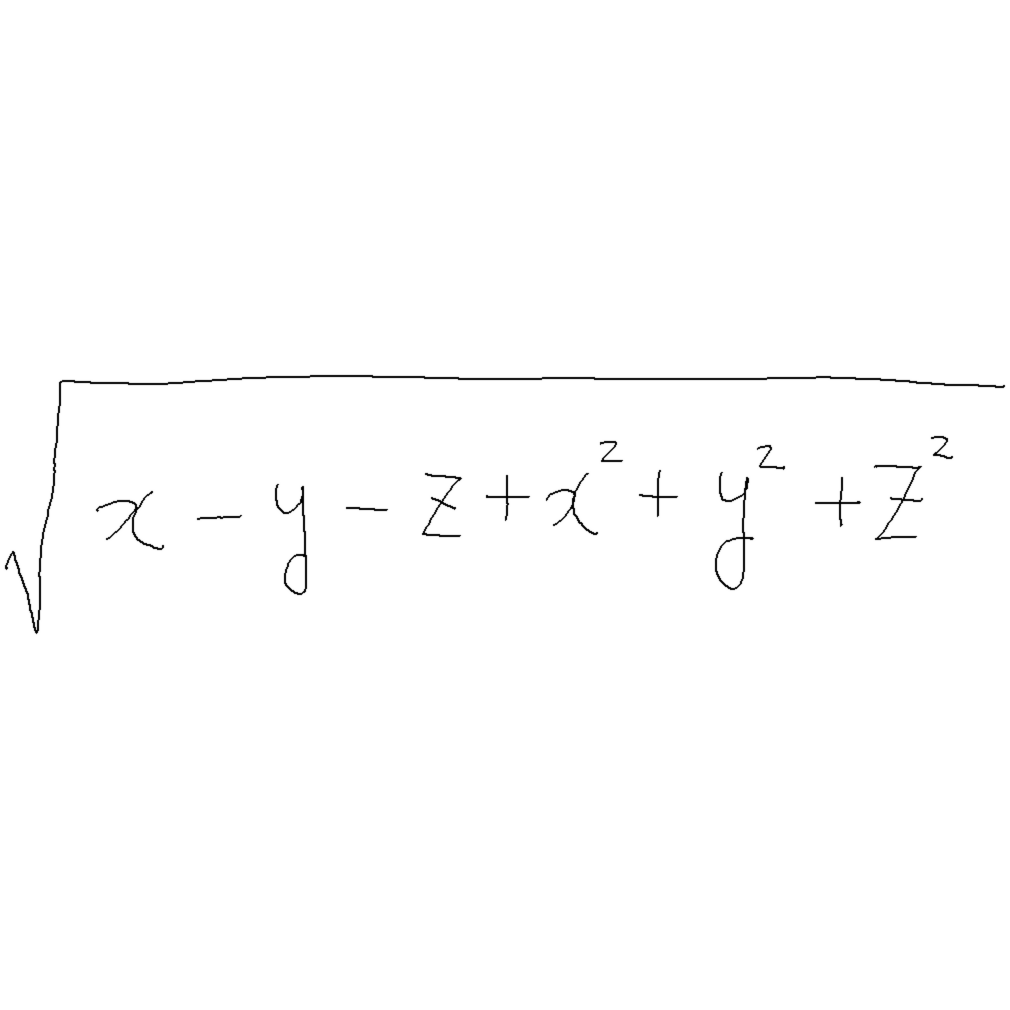 √(x - y - z + x² + y² + z²)